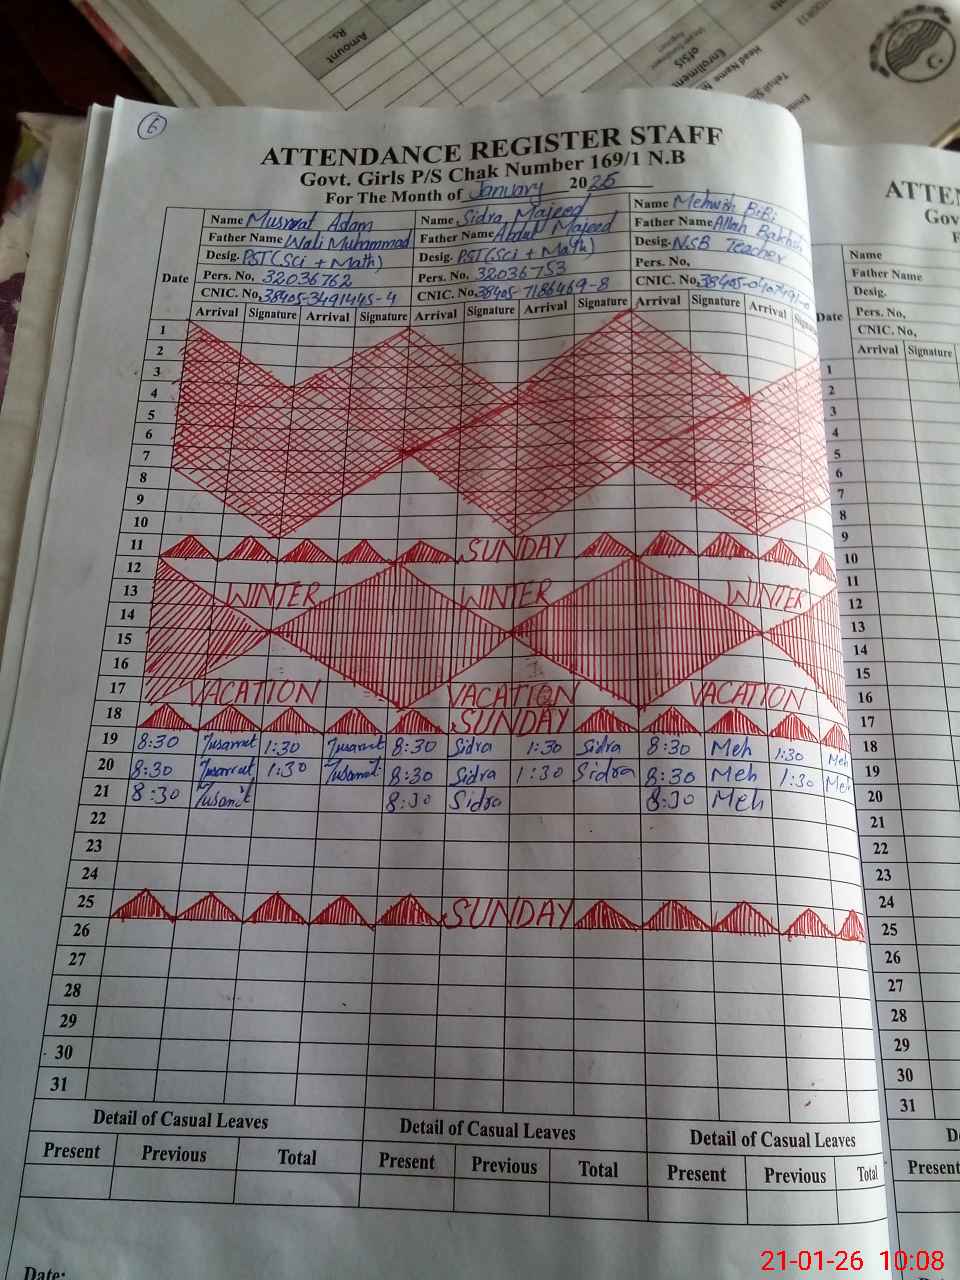 6
Amount
Rs.
Enrollment
ofSIS
Head Name
ATTENDANCE REGISTER STAFF
Govt. Girls P/S Chak Number 169/1 N.B
For The Month of January 2025
Name Musarat Adam Name Sidra Majeed Name Mehwish BiBi
Father Name Wali Muhammad Father Name Abdul Majeed Father Name Allah Bakhsh
Desig. PST(Sci + Math) Desig. PST(Sci + Math) Desig. NSB Teacher
Pers. No, 32036762 Pers. No. 32036753 Pers. No,
CNIC. No, 38405-3491445-4 CNIC. No, 38405-7186469-8 CNIC. No, 38405-0407491-0
Date Arrival Signature Arrival Signature Arrival Signature Arrival Signature Arrival Signature Arrival
1
2
3
4
5
6
7
8
9
10
11 SUNDAY
12
13 WINTER WINTER WINTER
14
15
16
17 VACATION VACATION VACATION
18 SUNDAY
19 8:30 Musarrat 1:30 Musarrat 8:30 Sidra 1:30 Sidra 8:30 Meh 1:30 Meh
20 8:30 Musarrat 1:30 Musarrat 8:30 Sidra 1:30 Sidra 8:30 Meh 1:30 Meh
21 8:30 Musarrat 8:30 Sidra 8:30 Meh
22
23
24
25 SUNDAY
26
27
28
29
30
31
Detail of Casual Leaves Detail of Casual Leaves Detail of Casual Leaves
Present Previous Total Present Previous Total Present Previous Total
Date:
ATTEN
Gov
F
Date
Name
Father Name
Desig.
Pers. No,
CNIC. No,
Arrival Signature
1
2
3
4
5
6
7
8
9
10
11
12
13
14
15
16
17
18
19
20
21
22
23
24
25
26
27
28
29
30
31
D
Present
21-01-26 10:08